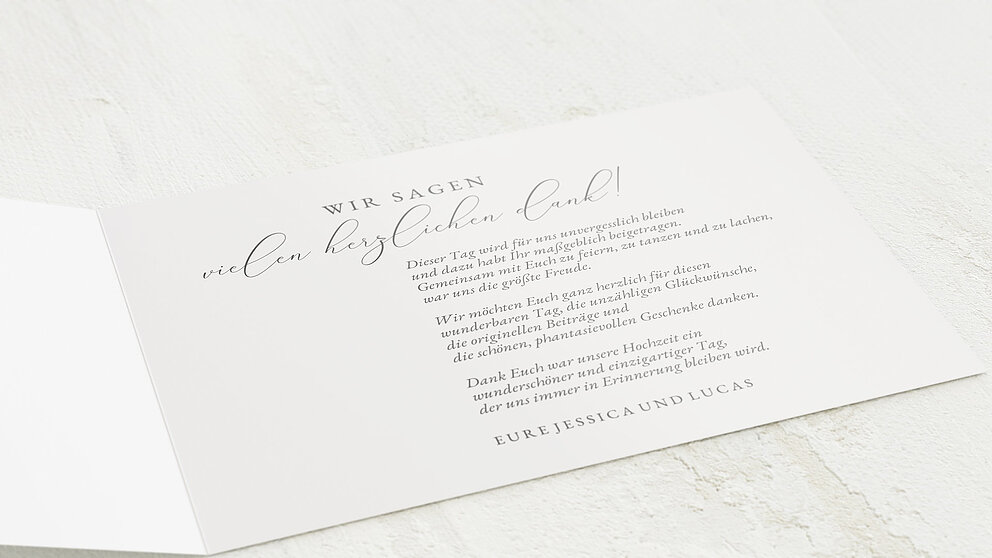 WIR SAGEN
vielen herzlichen dank!
Dieser Tag wird für uns unvergesslich bleiben
und dazu habt Ihr maßgeblich beigetragen.
Gemeinsam mit Euch zu feiern, zu tanzen und zu lachen,
war uns die größte Freude.
Wir möchten Euch ganz herzlich für diesen
wunderbaren Tag, die unzähligen Glückwünsche,
die originellen Beiträge und
die schönen, phantasievollen Geschenke danken.
Dank Euch war unsere Hochzeit ein
wunderschöner und einzigartiger Tag,
der uns immer in Erinnerung bleiben wird.
EURE JESSICA UND LUCAS